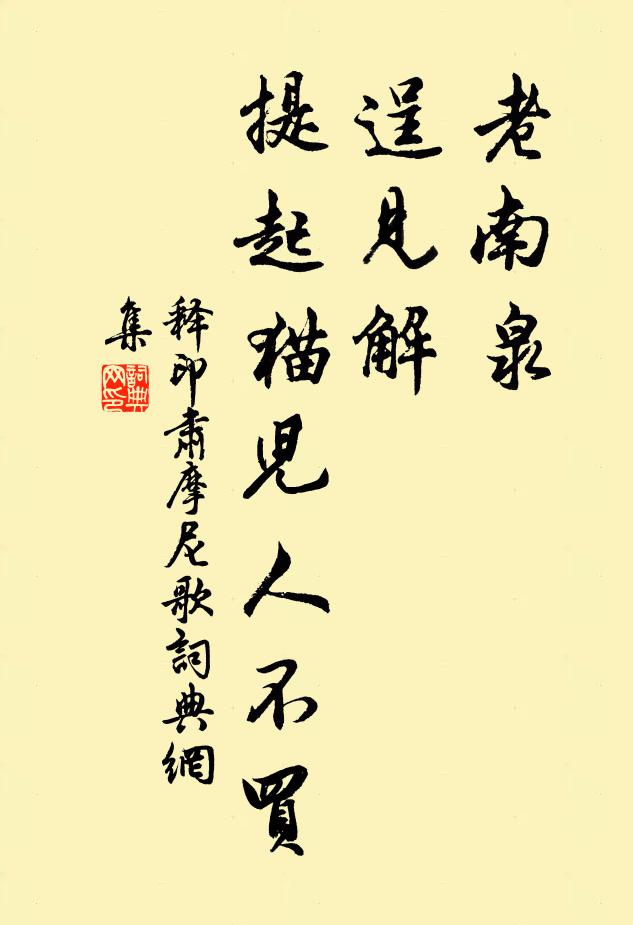 老南泉
逞見解
提起猫兒人不買
释印肅摩尼歌詞典網
集
詞典网印